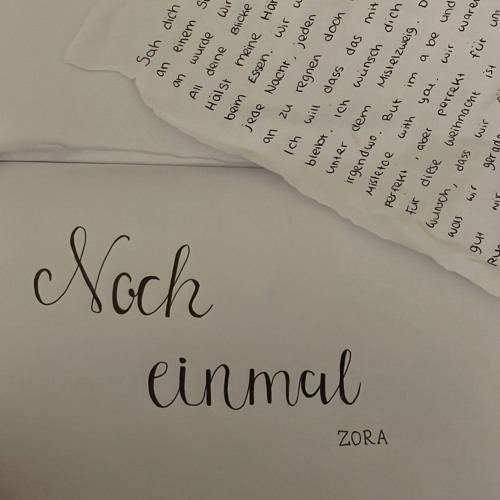 Sah dich
an einem S
an wurde wir
All deine Blicke
Hälst meine Hän
beim Essen. Wir w
jede Nacht, jeden
an zu regnen doch
Ich will dass das mit
bleibt. Ich wünsch dich
unter dem Mistelzweig. D
irgendwo. But im a be und
Mistletoe with you. Wir waren
perfekt, aber perfekt für un
für diese Weihnacht ist
Wunsch, dass wir
was wir gerad
gut wir
Noch
einmal
ZORA